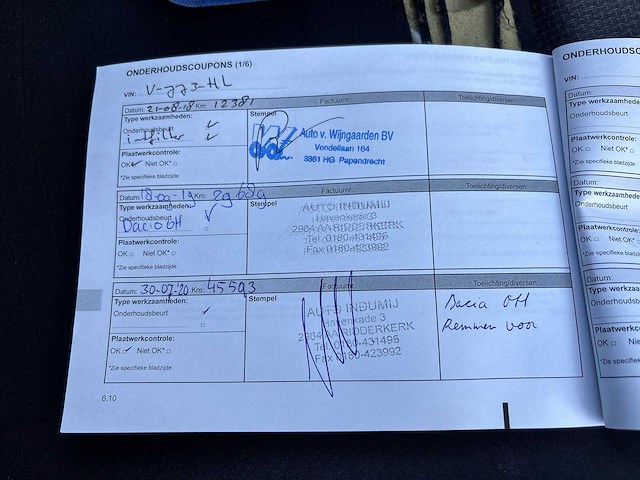 ONDERHOUDSCOUPONS (1/6)
VIN: V-773-HL
Datum: 21-08-18 Km: 12381
Factuurnr.
Toelichting/diversen
Type werkzaamheden:
Onderhoudsbeurt ✓
intfilter ✓
Plaatwerkcontrole:
OK ✓ Niet OK* □
*Zie specifieke bladzijde
Stempel
Auto v. Wijngaarden BV
Vondellaan 164
3351 HG Papendrecht
Datum: 18-09-19 Km:
Factuurnr.
Toelichting/diversen
Type werkzaamheden:
Onderhoudsbeurt ✓
Dacia OH □
Plaatwerkcontrole:
OK □ Niet OK* □
*Zie specifieke bladzijde
Stempel
AUTO INDUMIJ
Havenkade 3
2984 AA RIDDERKERK
Tel. 0180-431495
Fax 0180-423992
Datum: 30-07-20 Km: 45593
Factuurnr.
Toelichting/diversen
Type werkzaamheden:
Onderhoudsbeurt ✓
□
Plaatwerkcontrole:
OK ✓ Niet OK* □
*Zie specifieke bladzijde
Stempel
AUTO INDUMIJ
Havenkade 3
2984 AA RIDDERKERK
Tel. 0180-431495
Fax 0180-423992
Dacia OH
Remmen voor
6.10
ONDERHOUDSC
VIN:
Datum:
Type werkzaamhe
Onderhoudsbeurt
Plaatwerkcontrole
OK □ Niet OK*
*Zie specifieke bladz
Datum:
Type werkzaam
Onderhoudsbeu
Plaatwerkcontro
OK □ Niet O
*Zie specifieke bla
Datum:
Type werkzaa
Onderhoudsb
Plaatwerkcon
OK □ Nie
*Zie specifieke